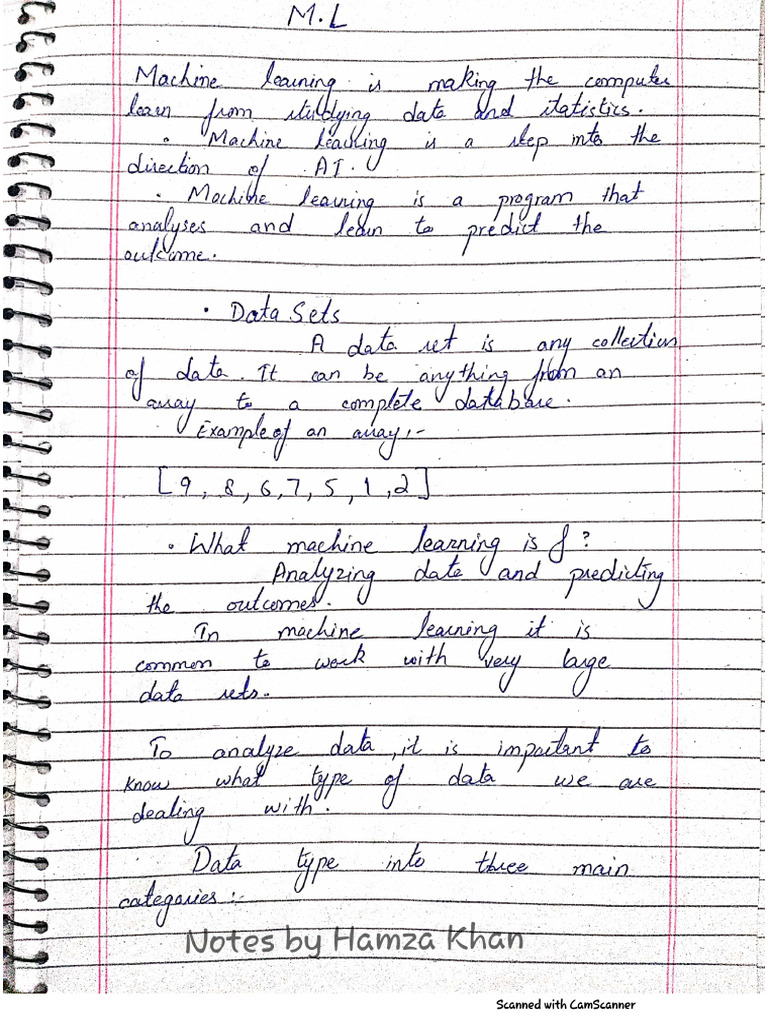 M.L
Machine learning is making the computer
learn from studying data and statistics.
• Machine learning is a step into the
direction of AI.
• Machine learning is a program that
analyses and learn to predict the
outcome.
• Data Sets
A data set is any collection
of data. It can be anything from an
array to a complete database.
Example of an array:-
[9, 8, 6, 7, 5, 1, 2]
• What machine learning is ?
Analyzing data and predicting
the outcomes.
In machine learning it is
common to work with very large
data sets.
To analyze data, it is important to
know what type of data we are
dealing with.
Data type into three main
categories:-
Notes by Hamza Khan
Scanned with CamScanner